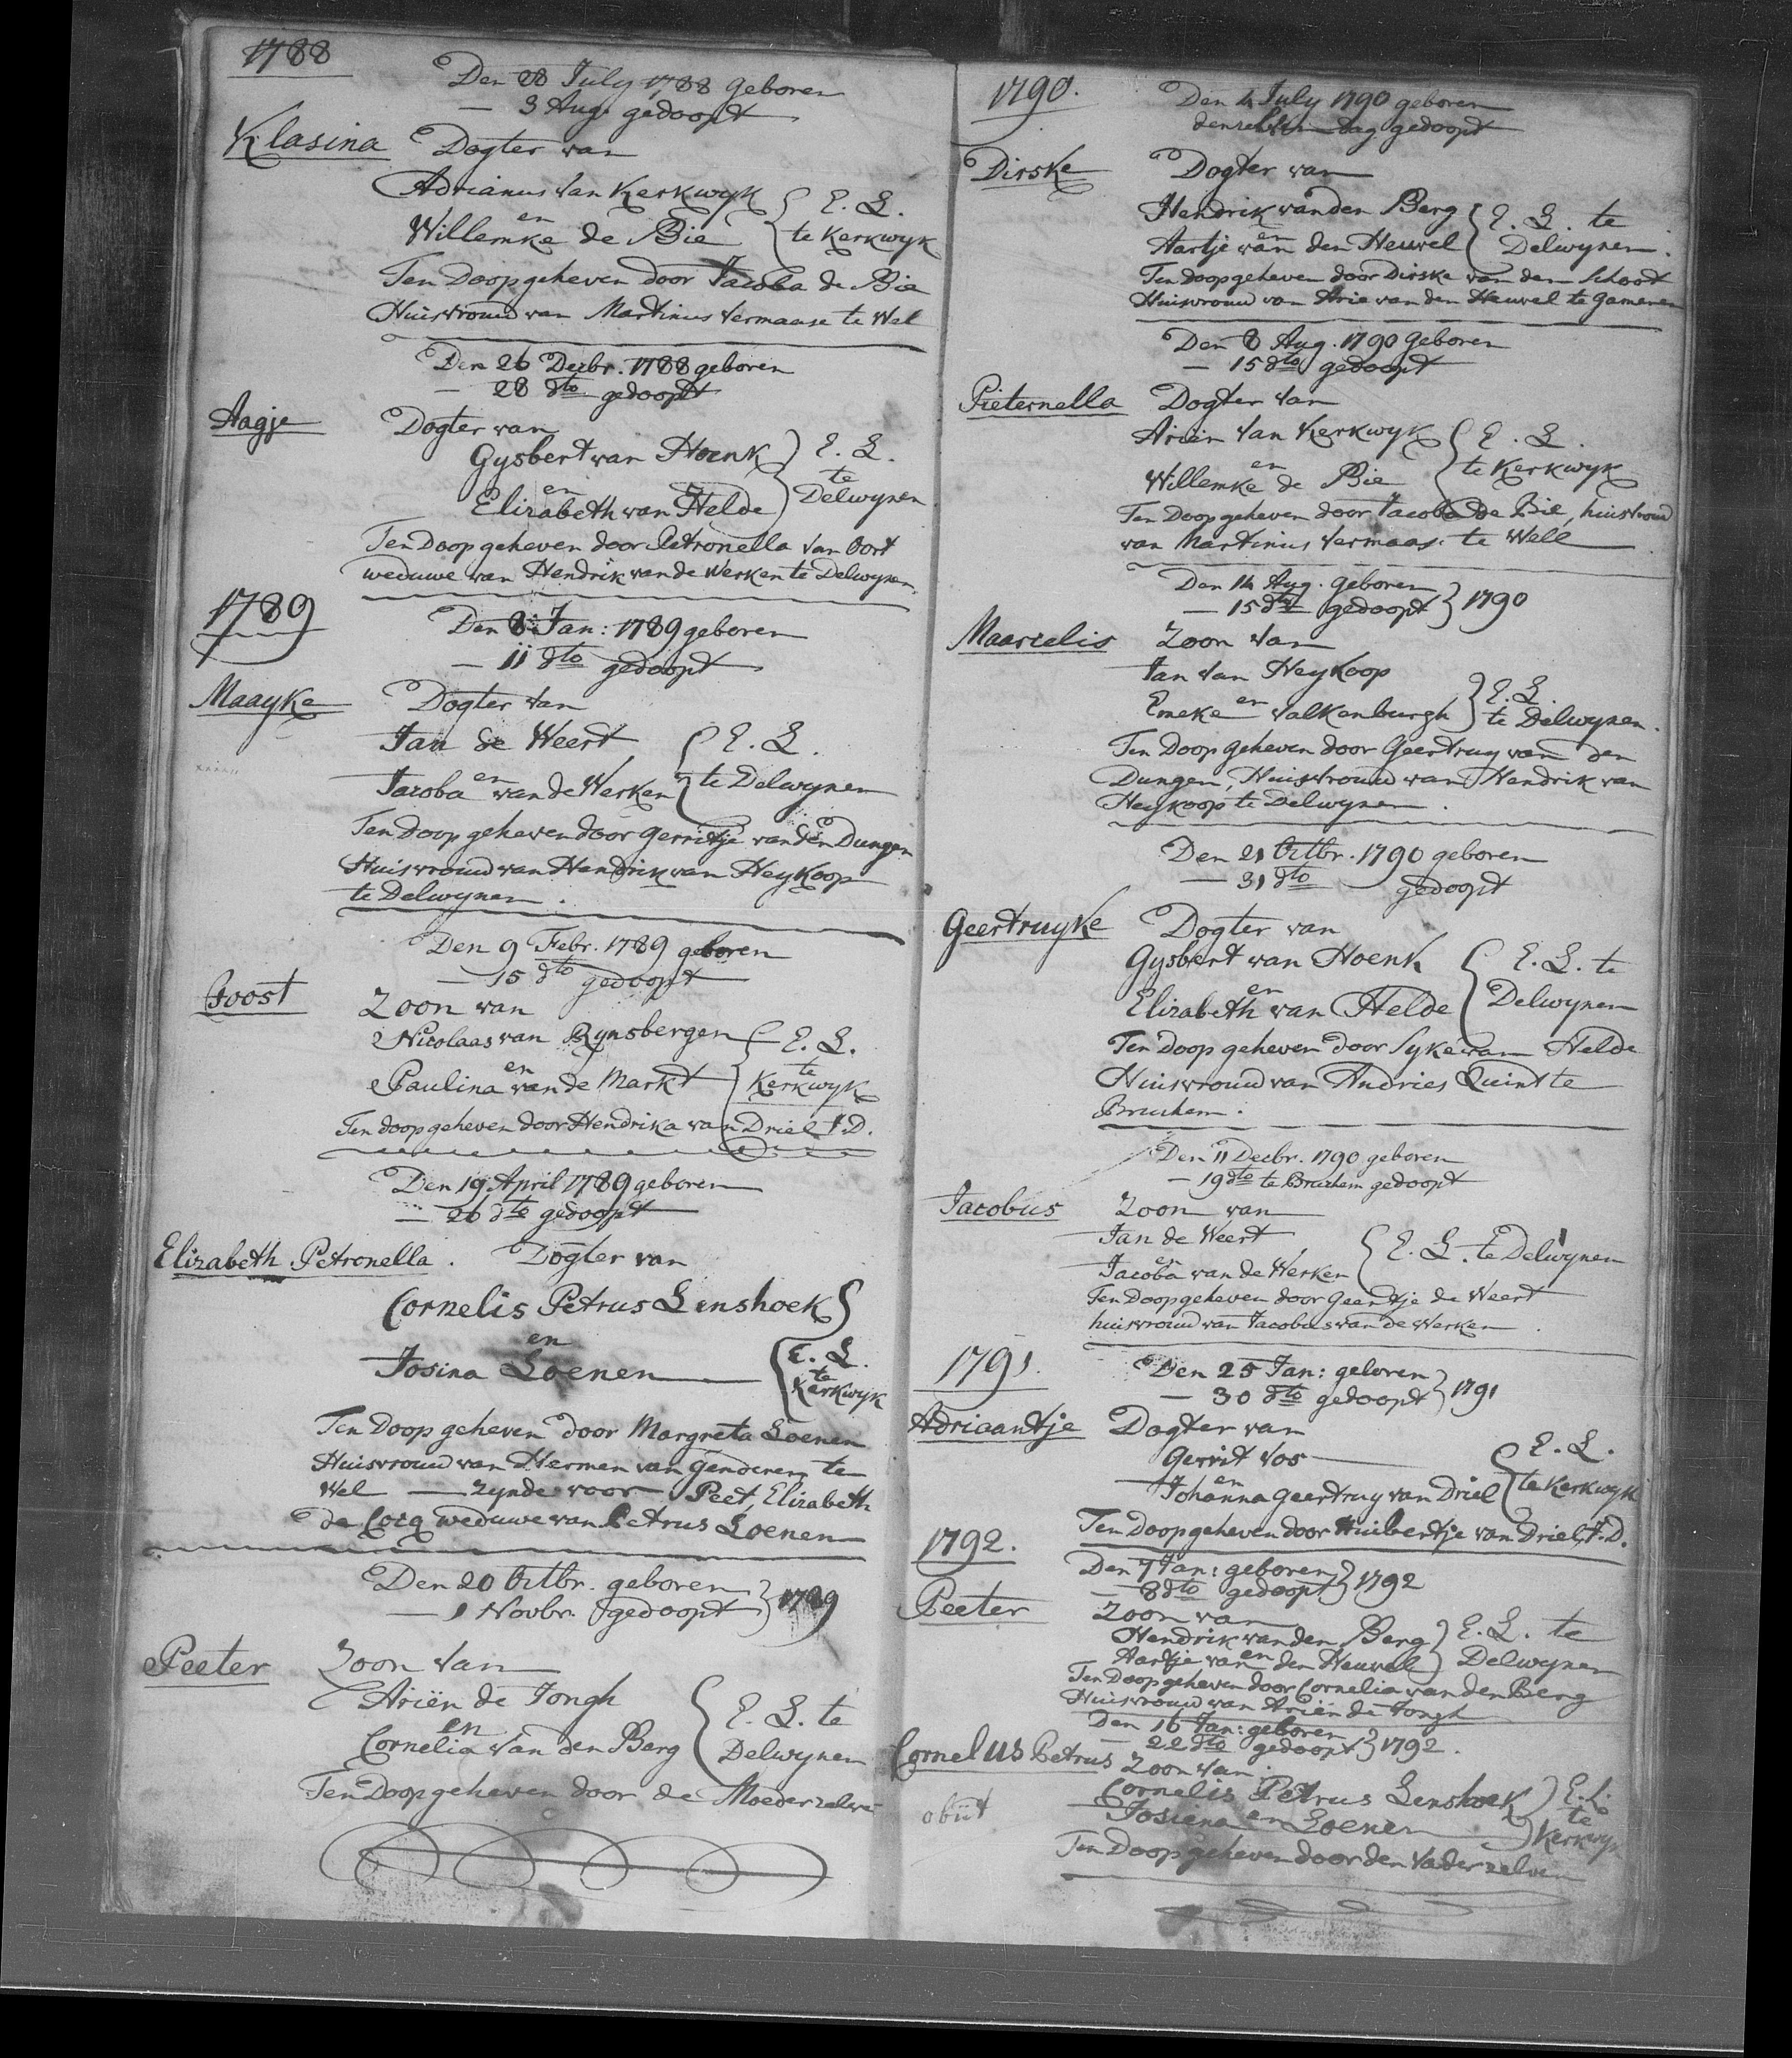 1788
Den 28 July 1788 geboren
— 3 Aug. gedoopt
Klasina Dogter van
Adrianus van Kerkwyk
en
Willemke de Bie
E. L.
te Kerkwyk
Ten Doop geheven door Jacoba de Bie
Huisvrouw van Martinus Vermaase te Wel
Den 26 Decbr. 1788 geboren
— 28 dto gedoopt
Aagje Dogter van
Gysbert van Hoenk
en
Elizabeth van Helde
E. L.
te
Delwynen
Ten Doop geheven door Petronella van Oort
weduwe van Hendrik van de Werken te Delwynen
1789
Den 8 Jan: 1789 geboren
— 11 dto gedoopt
Maayke Dogter van
Jan de Weert
en
Jacoba van de Werken
E. L.
te Delwynen
Ten Doop geheven door Gerritje van den Dungen
Huisvrouw van Hendrik van Heykoop
te Delwynen.
Den 9 Febr. 1789 geboren
— 15 dto gedoopt
Joost Zoon van
Nicolaas van Rynsbergen
en
Paulina van de Markt
E. L.
te
Kerkwyk
Ten doop geheven door Hendrika van Driel J.D.
Den 19 April 1789 geboren
— 26 dto gedoopt
Elizabeth Petronella. Dogter van
Cornelis Petrus Lenshoek
en
Josina Loenen
E. L.
te
Kerkwyk
Ten Doop geheven door Margreta Loenen
Huisvrouw van Hermen van Genderen te
Wel — zynde voor Peet, Elizabeth
de Cocq weduwe van Petrus Loenen
Den 20 Octbr. geboren
— 1 Novbr. gedoopt
1789
Peeter Zoon van
Ariën de Jongh
en
Cornelia van den Berg
E. L. te
Delwynen
Ten Doop geheven door de Moeder zelve
1790.
Den 4 July 1790 geboren
denzelven dag gedoopt
Dirske Dogter van
Hendrik van den Berg
en
Aartje van den Heuvel
E. L. te
Delwynen.
Ten Doop geheven door Dirske van den Schoot
Huisvrouw van Arie van den Heuvel te Gameren
Den 8 Aug. 1790 geboren
— 15 dto gedoopt
Pieternella Dogter van
Ariën van Kerkwyk
en
Willemke de Bie
E. L.
te Kerkwyk
Ten Doop geheven door Jacoba de Bie, huisvrouw
van Martinus Vermaas. te Well
Den 14 Aug. geboren
— 15 dto gedoopt
1790
Maarcelis Zoon van
Jan van Heykoop
en
Emeke Valkenburgh
E. L.
te Delwynen.
Ten Doop geheven door Geertruy van den
Dungen, Huisvrouw van Hendrik van
Heykoop te Delwynen.
Den 21 Octbr. 1790 geboren
— 31 dto gedoopt
Geertruyke Dogter van
Gysbert van Hoenk
en
Elizabeth van Helde
E. L. te
Delwynen
Ten Doop geheven door Syke van Helde
Huisvrouw van Andries Quint te
Bruchem.
Den 11 Decbr. 1790 geboren
— 19 dto te Bruchem gedoopt
Jacobus Zoon van
Jan de Weert
en
Jacoba van de Werken
E. L. te Delwynen
Ten Doop geheven door Geertje de Weert
huisvrouw van Jacobus van de Werken.
1791.
Den 25 Jan: geboren
— 30 dto gedoopt
1791
Adriaantje Dogter van
Gerrit Vos
en
Johanna Geertruy van Driel
E. L.
te Kerkwyk
Ten Doop geheven door Huibertje van Driel, J.D.
1792.
Den 7 Jan: geboren
— 8 dto gedoopt
1792
Peeter Zoon van
Hendrik van den Berg
en
Aartje van den Heuvel
E. L. te
Delwynen
Ten Doop geheven door Cornelia van den Berg
Huisvrouw van Ariën de Jongh
Den 16 Jan: geboren
— 22 dto gedoopt
1792.
Cornelus Petrus Zoon van.
Cornelis Petrus Lenshoek
en
Josiena Loenen
E. L.
te
Kerkwyk
obiit
Ten Doop geheven door den Vader zelven